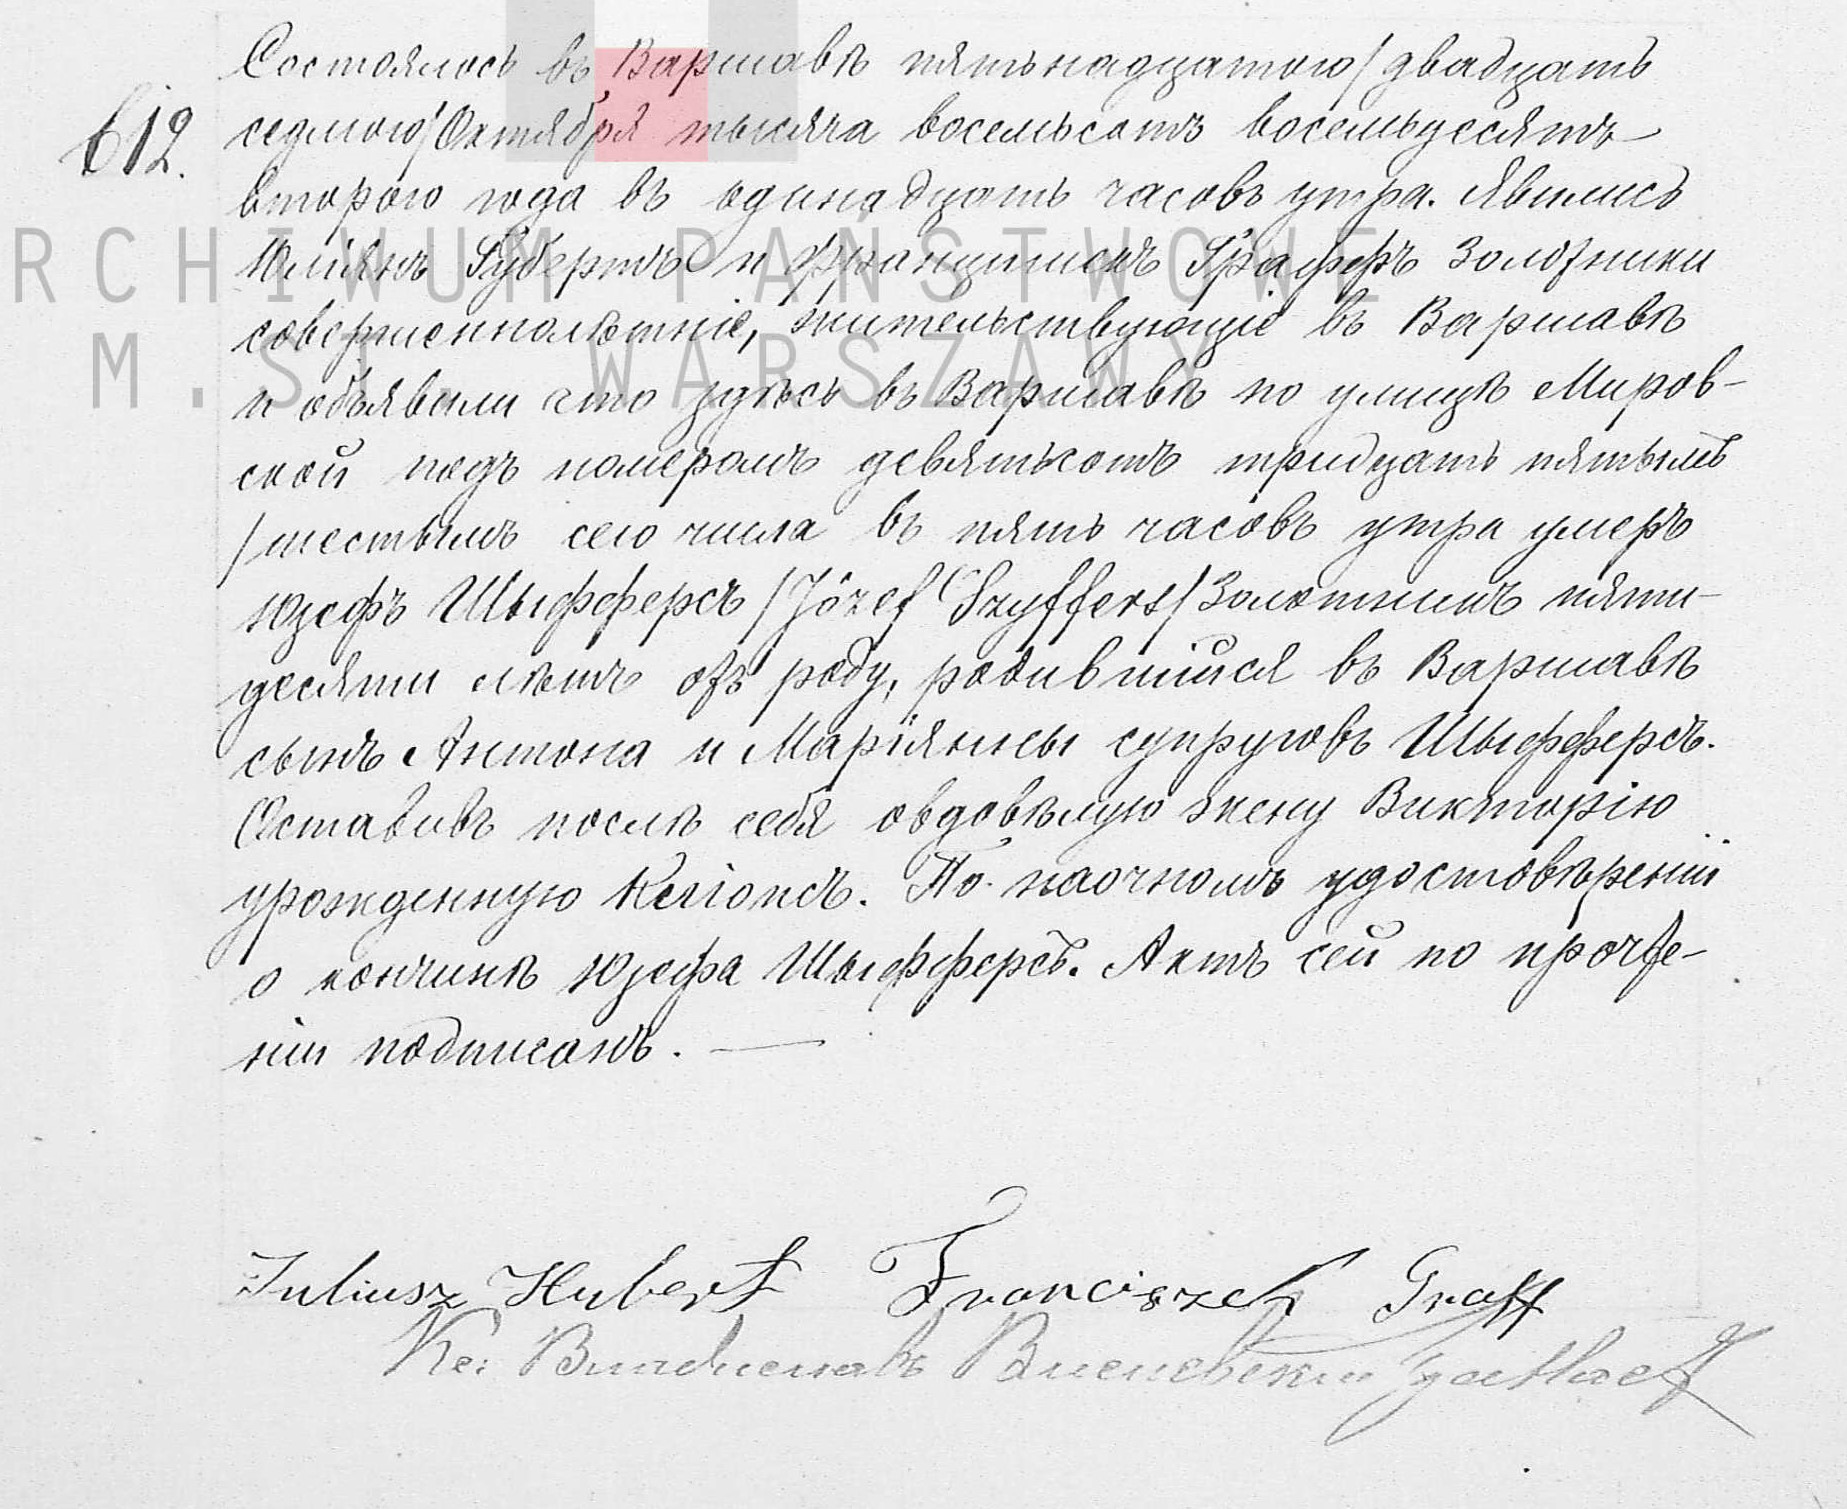 Состоялось въ Варшавѣ пятьнадцатого / двадцать
612.
седмого / Октября тысяча восемьсотъ восемьдесятъ
второго года въ одинадцать часовъ утра. Явились
Юліянъ Губертъ и Францишекъ Граффъ Золотники
совершеннолѣтніе, жительствующіе въ Варшавѣ
и объявили что здѣсь въ Варшавѣ по улицѣ Миров-
ской подъ номеромъ девятьсотъ тридцать пятымъ
/ шестымъ сего числа въ пять часовъ утра умеръ
Юзефъ Шыфферсъ / Józef Szyffers / Золотникъ пяти-
десяти лѣтъ отъ роду, родившійся въ Варшавѣ
сынъ Антона и Маріянны супруговъ Шыфферсъ.
Оставивъ послѣ себя овдовѣлую жену Викторію
урожденную. По наочномъ удостовѣреніи
о кончинѣ Юзефа Шыфферсъ. Актъ сей по прочте-
ніи подписанъ.
Juliusz Hubert Franciszek Graff
Кс:
ARCHIWUM PAŃSTWOWE
M. ST. WARSZAWY